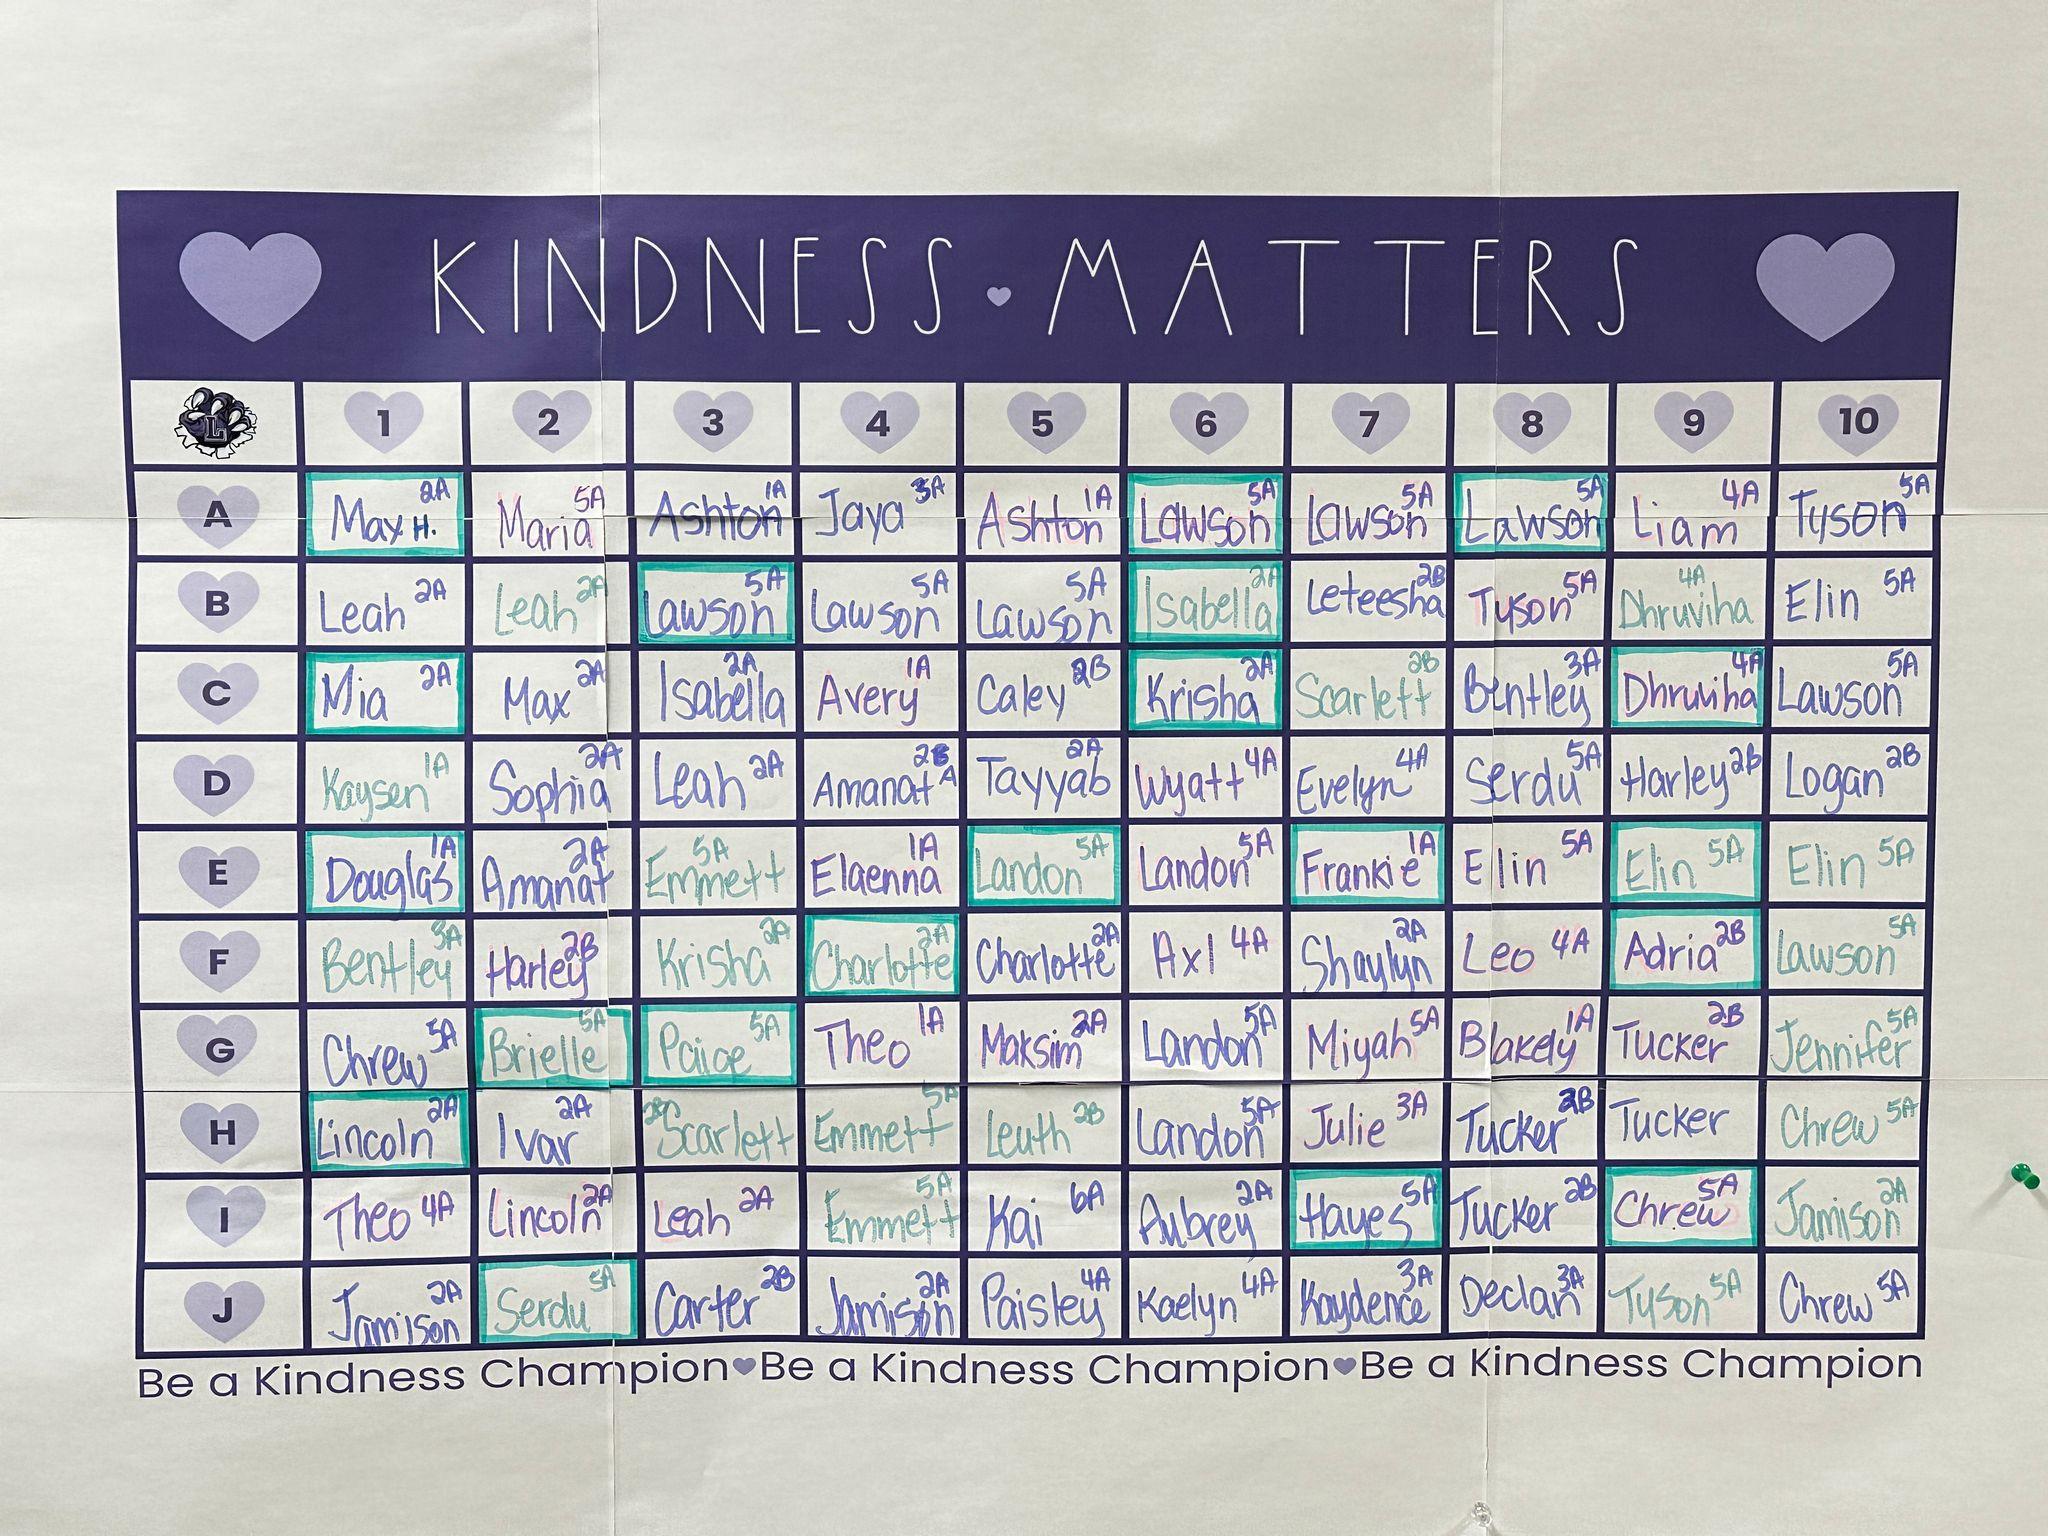 KINDNESS MATTERS
L 1 2 3 4 5 6 7 8 9 10
A Max H. 2A Maria 5A Ashton 1A Jaya 3A Ashton 1A Lawson 5A Lawson 5A Lawson 5A Liam 4A Tyson 5A
B Leah 2A Leah 2A Lawson 5A Lawson 5A Lawson 5A Isabella 2A Leteesha 2B Tyson 5A Dhruviha 4A Elin 5A
C Mia 2A Max 2A Isabella 2A Avery 1A Caley 2B Krisha 2A Scarlett 2B Bentley 3A Dhruviha 4A Lawson 5A
D Kaysen 1A Sophia 2A Leah 2A Amanat 2B A Tayyab 2A Wyatt 4A Evelyn 4A Serdu 5A Harley 2B Logan 2B
E Douglas 1A Amanat 2A Emmett 5A Elaenna 1A Landon 5A Landon 5A Frankie 1A Elin 5A Elin 5A Elin 5A
F Bentley 3A Harley 2B Krisha 2A Charlotte 2A Charlotte 2A Axl 4A Shaylyn 2A Leo 4A Adria 2B Lawson 5A
G Chrew 5A Brielle 5A Paige 5A Theo 1A Maksim 2A Landon 5A Miyah 5A Blakely 1A Tucker 2B Jennifer 5A
H Lincoln 2A Ivar 2A Scarlett Emmett 5A Leuth 2B Landon 5A Julie 3A Tucker 2B Tucker Chrew 5A
I Theo 4A Lincoln 2A Leah 2A Emmett 5A Kai 6A Aubrey 2A Hayes 5A Tucker 2B Chrew 5A Jamison 2A
J Jamison 2A Serdu 5A Carter 2B Jamison 2A Paisley 4A Kaelyn 4A Kaydence 3A Declan 3A Tyson 5A Chrew 5A
Be a Kindness Champion Be a Kindness Champion Be a Kindness Champion